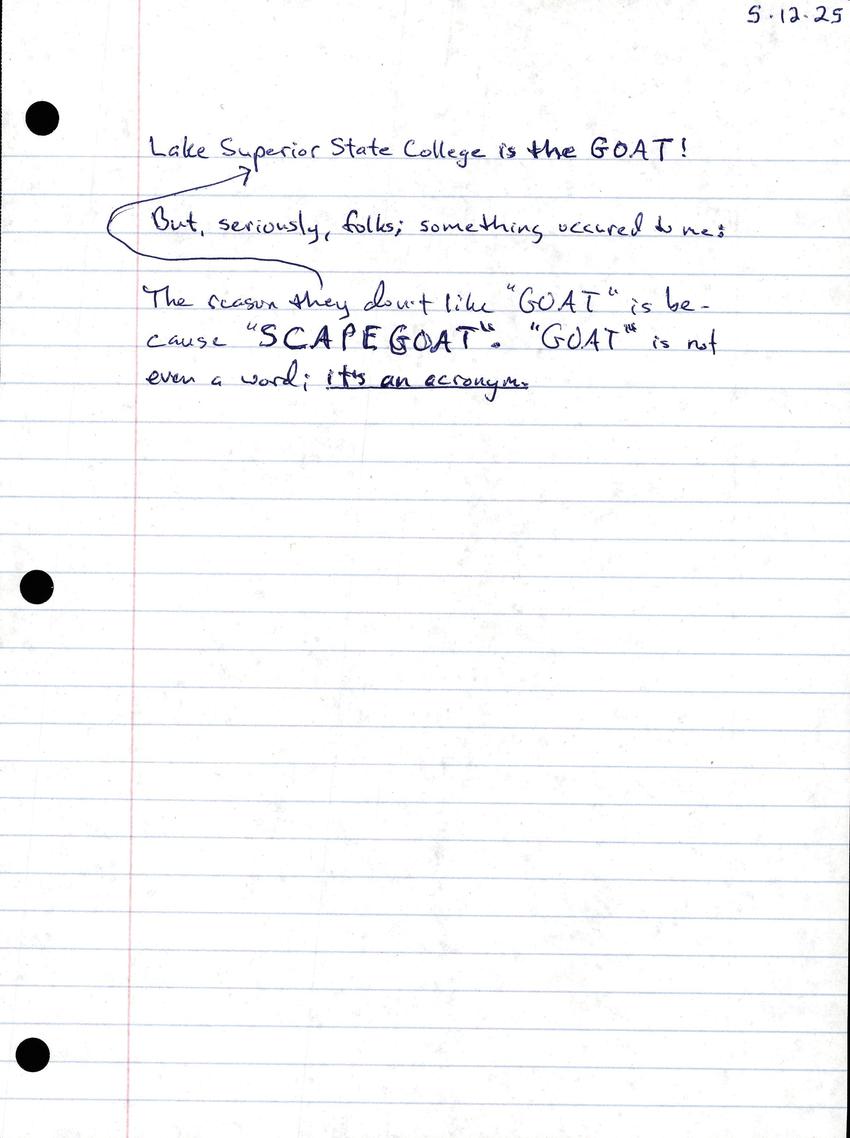 5.12.25
Lake Superior State College is the GOAT!
But, seriously, folks; something occured to me:
The reason they don't like "GOAT" is be-
cause "SCAPEGOAT". "GOAT" is not
even a word; it's an acronym.